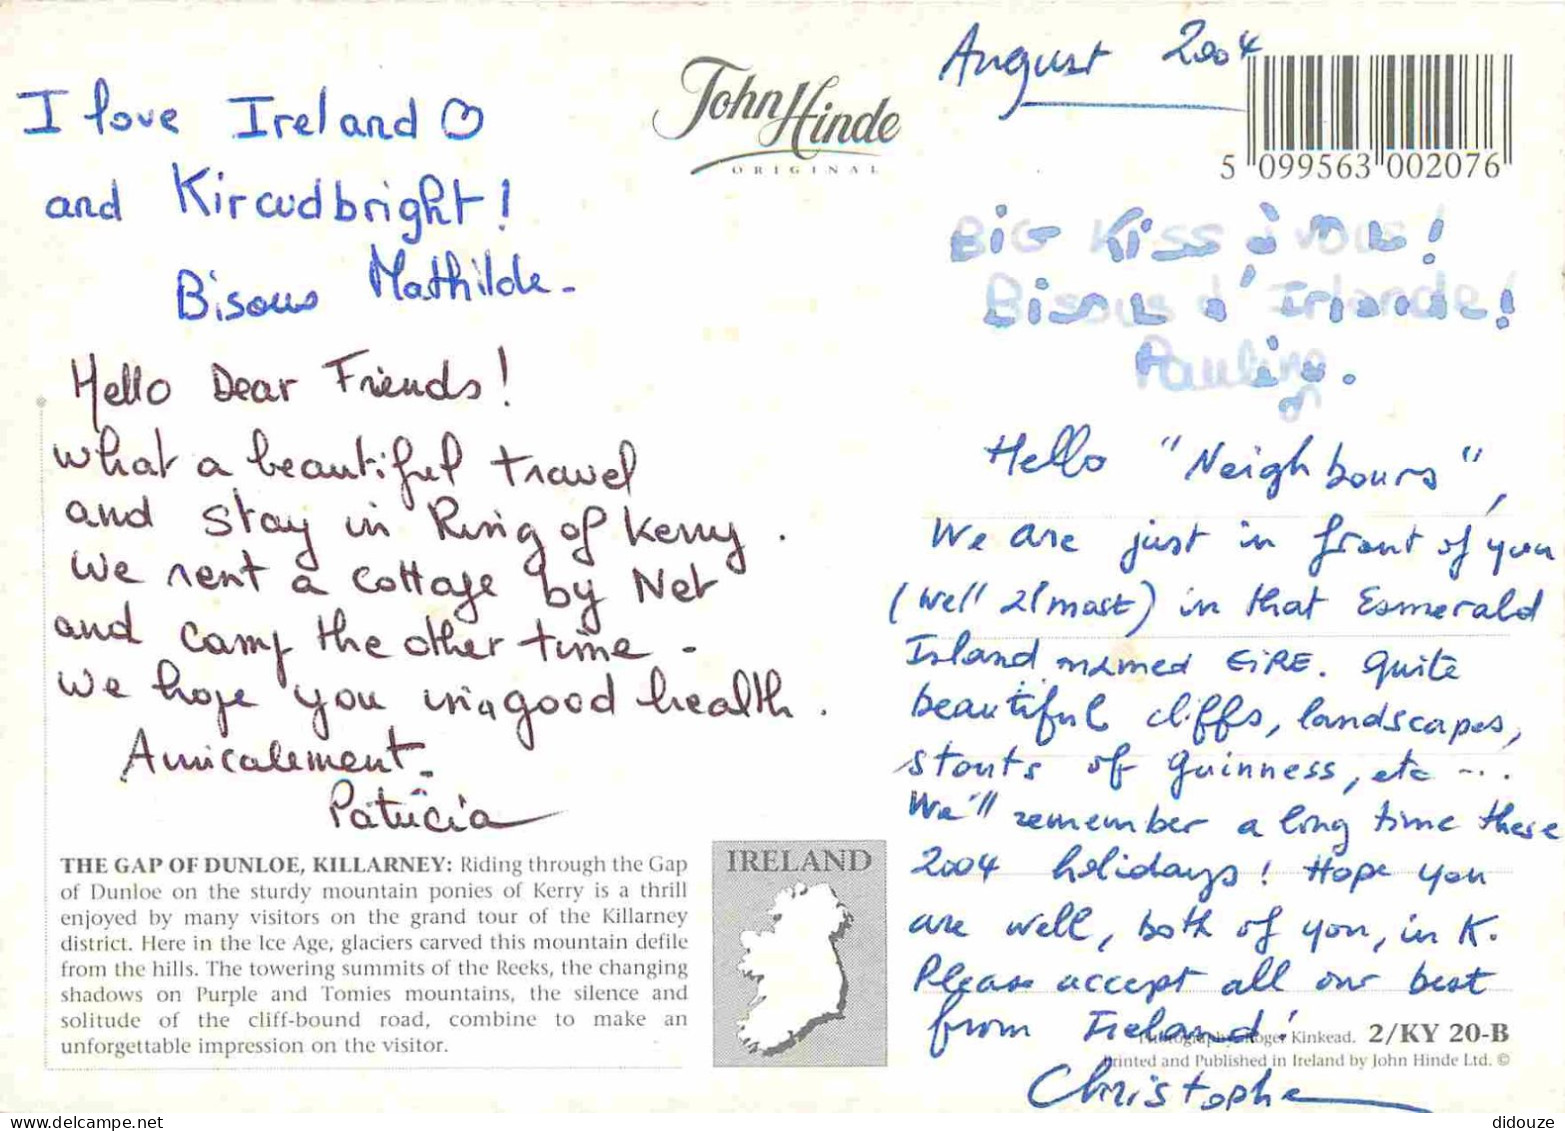 I love Ireland
and Kircudbright!
Bisous Mathilde.
Hello Dear Friends!
What a beautiful travel
and stay in Ring of Kerry.
We rent a cottage by Net
and camp the other time.
We hope you in a good health.
Amicalement.
Patricia
THE GAP OF DUNLOE, KILLARNEY: Riding through the Gap
of Dunloe on the sturdy mountain ponies of Kerry is a thrill
enjoyed by many visitors on the grand tour of the Killarney
district. Here in the Ice Age, glaciers carved this mountain defile
from the hills. The towering summits of the Reeks, the changing
shadows on Purple and Tomies mountains, the silence and
solitude of the cliff-bound road, combine to make an
unforgettable impression on the visitor.
John Hinde
ORIGINAL
IRELAND
August 2004
5 099563 002076
BiG Kiss à vous!
Bisous d'Irlande!
Pauline.
Hello "Neighbours",
We are just in front of you
(well almost) in that Esmerald
Island named EiRE. Quite
beautiful cliffs, landscapes,
stouts of Guinness, etc ...
We'll remember a long time these
2004 holidays! Hope you
are well, both of you, in K.
Please accept all our best
from Ireland!
Photography: Roger Kinkead. 2/KY 20-B
Printed and Published in Ireland by John Hinde Ltd. ©
Christophe
didouze